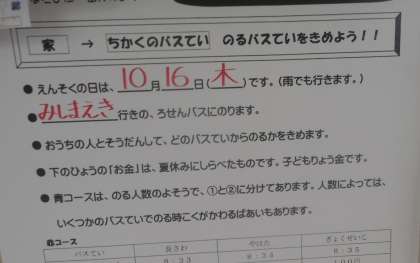 家 → ちかくのバスてい のるバスていをきめよう！！
● えんそくの日は、10月16日（木）です。（雨でも行きます。）
● みしまえき行きの、ろせんバスにのります。
● おうちの人とそうだんして、どのバスていからのるかをきめます。
● 下のひょうの「お金」は、夏休みにしらべたものです。子どもりょう金です。
● 青コースは、のる人数のよそうで、①と②に分けてあります。人数によっては、
いくつかのバスていでのる時こくがかわるばあいもあります。
コース
バスてい 長さわ やはた ぎょくせいじ
8：33 8：34 8：35